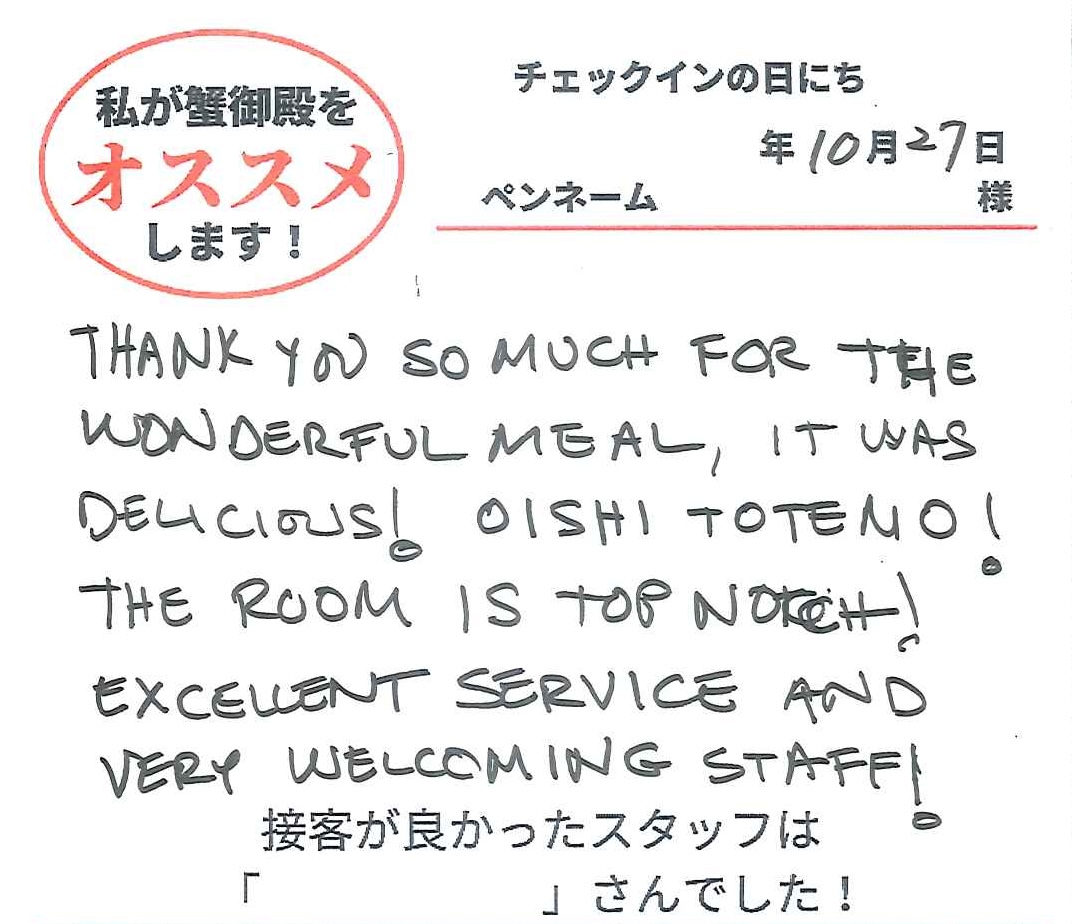 私が蟹御殿を
オススメ
します！
チェックインの日にち
年10月27日
ペンネーム 様
THANK YOU SO MUCH FOR THE
WONDERFUL MEAL, IT WAS
DELICIOUS! OISHI TOTEMO!
THE ROOM IS TOP NOTCH!
EXCELLENT SERVICE AND
VERY WELCOMING STAFF!
接客が良かったスタッフは
「 」さんでした！